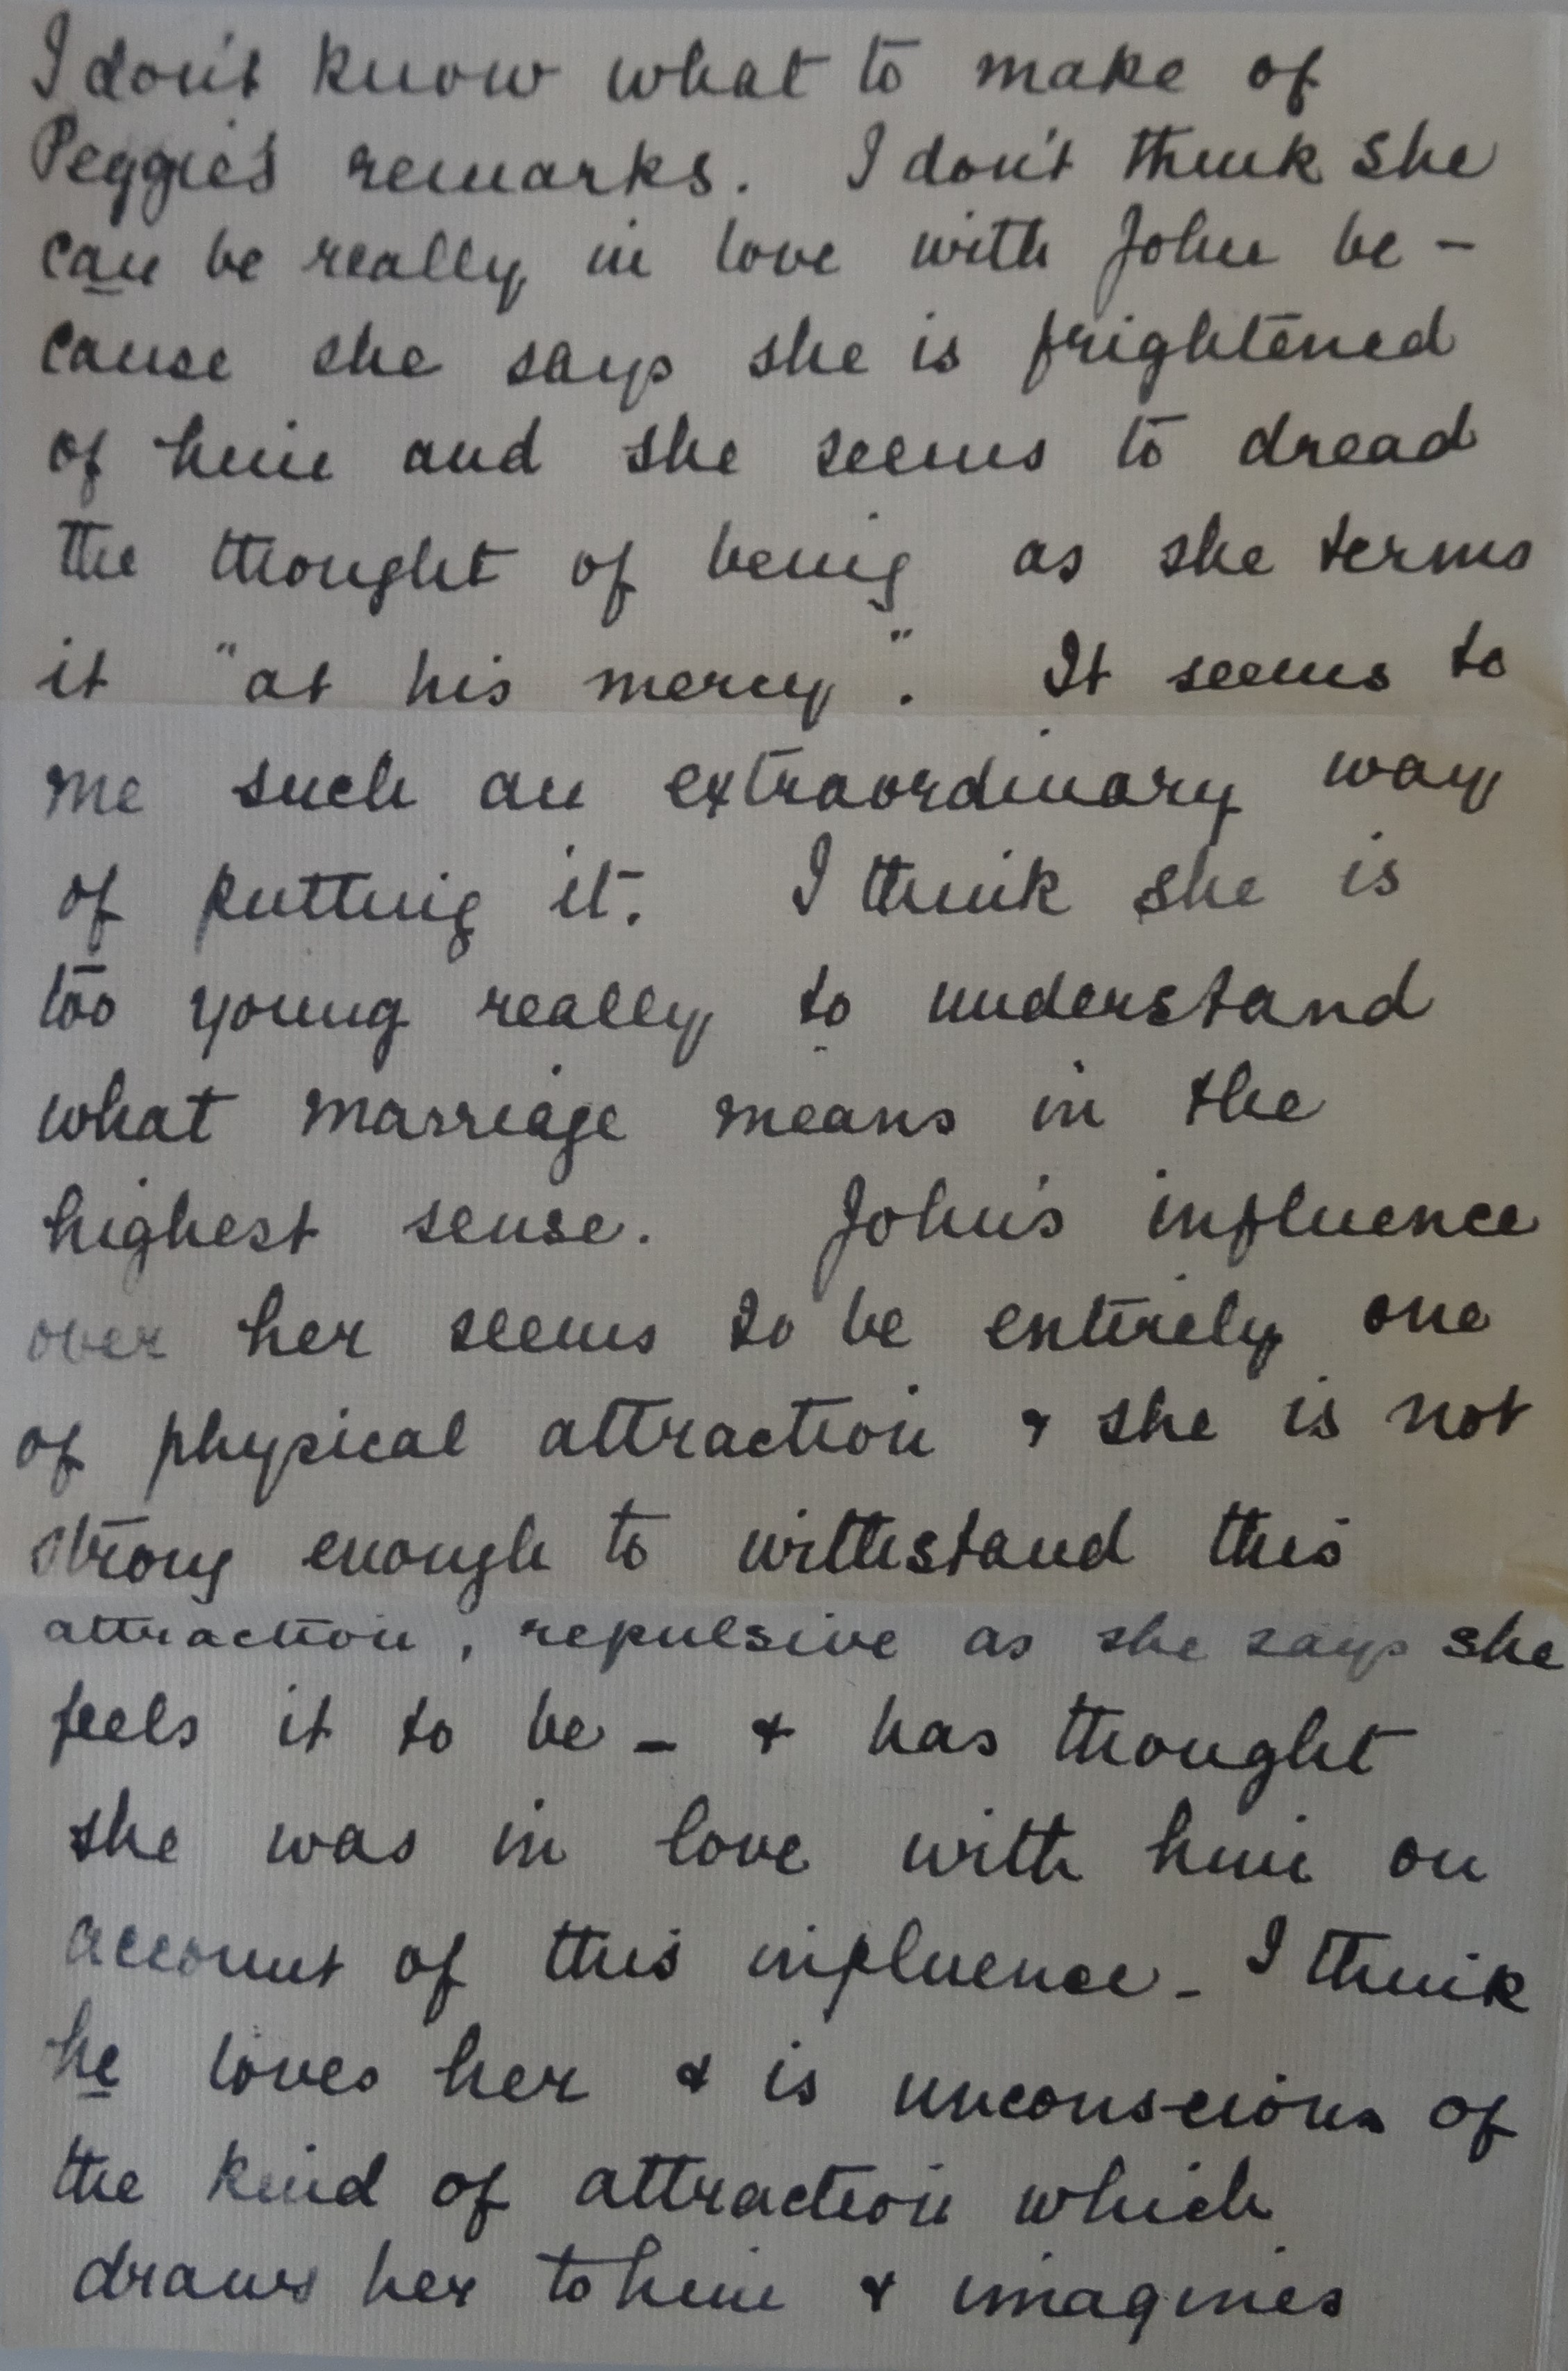 I don't know what to make of
Peggie's remarks. I don't think she
can be really in love with John be-
cause she says she is frightened
of him and she seems to dread
the thought of being as she terms
it "at his mercy". It seems to
me such an extraordinary way
of putting it. I think she is
too young really to understand
what marriage means in the
highest sense. John's influence
over her seems to be entirely one
of physical attraction & she is not
strong enough to withstand this
attraction, repulsive as she says she
feels it to be - & has thought
she was in love with him on
account of this influence - I think
he loves her & is unconscious of
the kind of attraction which
draws her to him & imagines